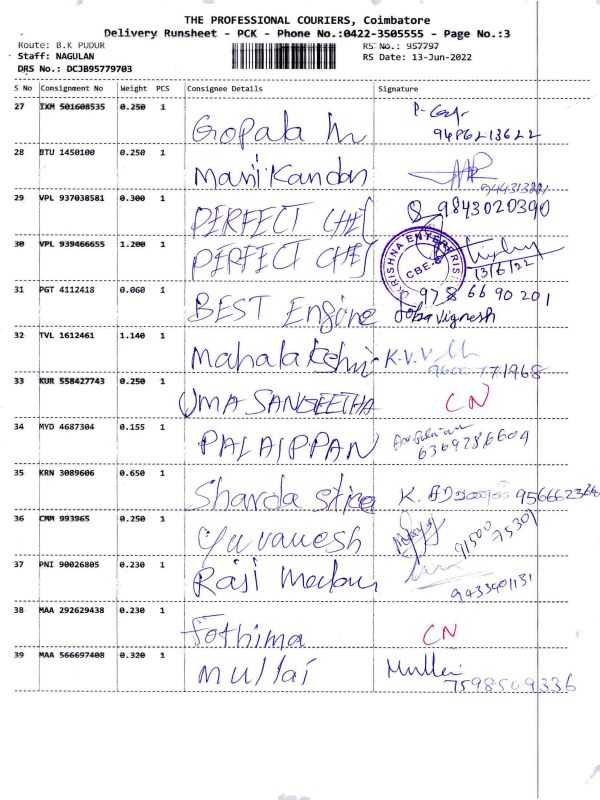 THE PROFESSIONAL COURIERS, Coimbatore
Delivery Runsheet - PCK - Phone No.:0422-3505555 - Page No.:3
Route: B.K PUDUR RS No.: 957797
Staff: NAGULAN RS Date: 13-Jun-2022
DRS No.: DCJB95779703
S No Consignment No Weight PCS Consignee Details Signature
27 IXM 501608535 0.250 1
Gopala m 9486213622
28 BTU 1450100 0.250 1
Manikandan
29 VPL 937038581 0.300 1
PERFECT CHEF 9843020390
30 VPL 939466655 1.200 1
PERFECT CHEF KRISHNA ENTERPRISES CBE-8 13/6/22
31 PGT 4112418 0.060 1 978 66 90 201
BEST Engine Joba Vignesh
32 TVL 1612461 1.140 1
Mahalakshmi K.V.V
33 KUR 558427743 0.250 1
UMA SANGEETHA CN
34 MYD 4687304 0.155 1
PALAIPPAN 6369286604
35 KRN 3089606 0.650 1
Sharda K. சரவணன்
36 CMM 993965 0.250 1
Yuvanesh 91500 75301
37 PNI 90026805 0.230 1
Raji 9433401131
38 MAA 292629438 0.230 1
Fathima CN
39 MAA 566697408 0.320 1
Mullai Mullai
7598509336